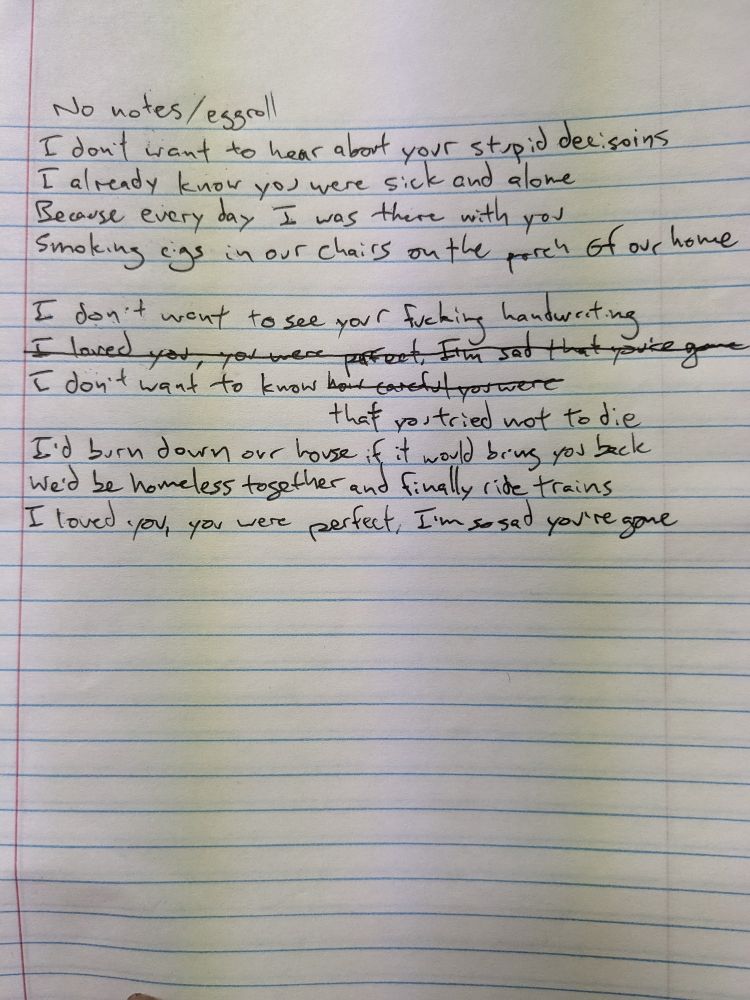 No notes/eggroll
I don't want to hear about your stupid decisoins
I already know you were sick and alone
Because every day I was there with you
Smoking cigs in our chairs on the porch of our home
I don't want to see your fucking handwriting
I loved you, you were pafect, I'm sad that you're gone
I don't want to know how careful you were
that you tried not to die
I'd burn down our house if it would bring you back
We'd be homeless together and finally ride trains
I loved you, you were perfect, I'm so sad you're gone